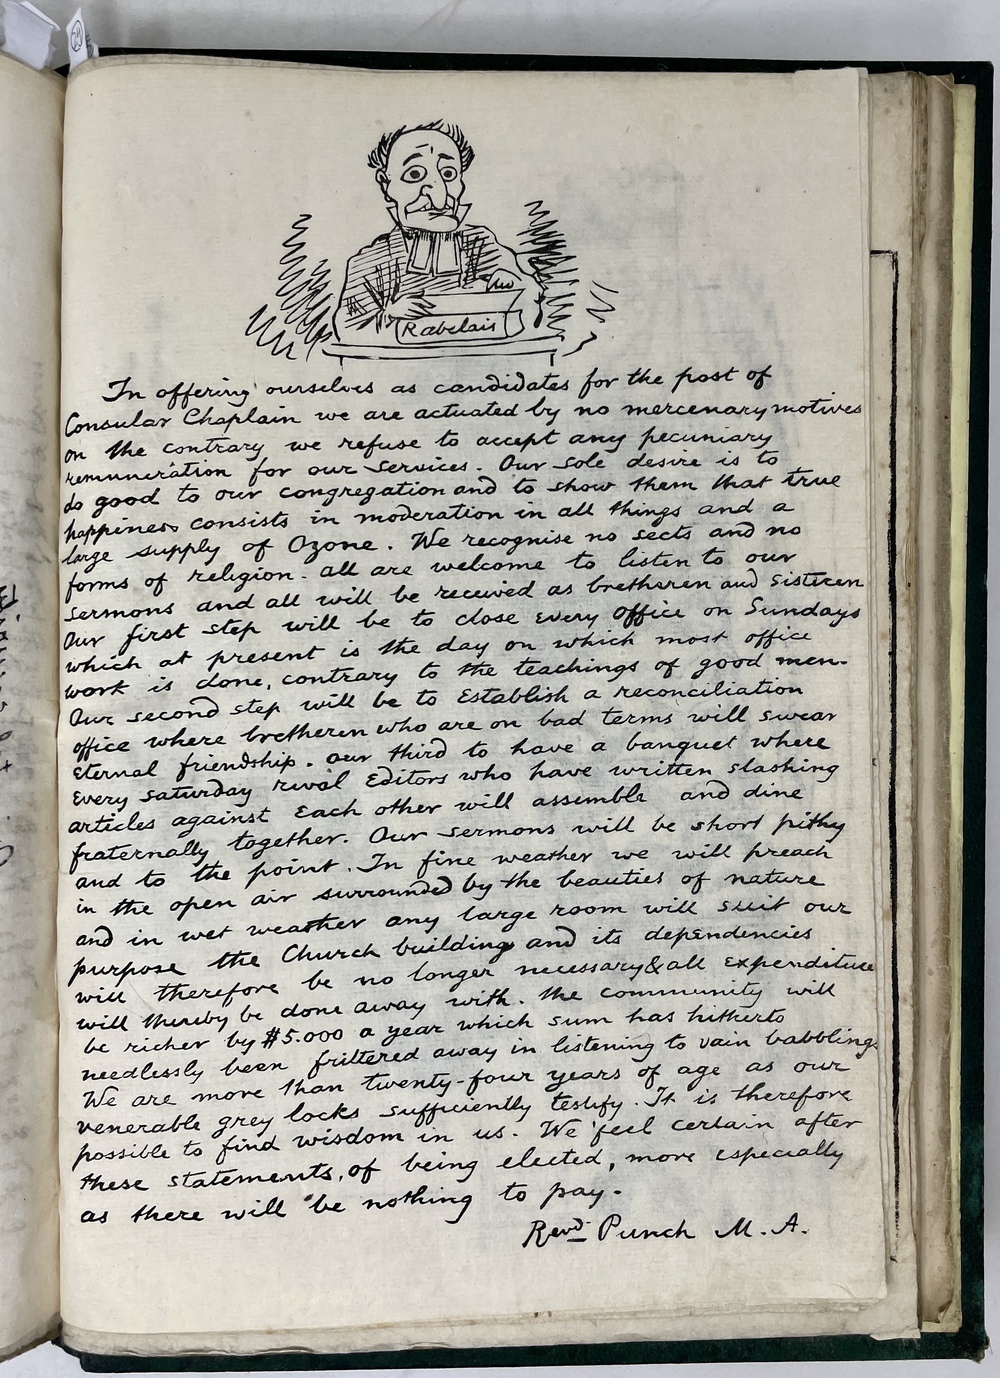 Rabelais
In offering ourselves as candidates for the post of
Consular Chaplain we are actuated by no mercenary motives
on the contrary we refuse to accept any pecuniary
remuneration for our services. Our sole desire is to
do good to our congregation and to show them that true
happiness consists in moderation in all things and a
large supply of Ozone. We recognise no sects and no
forms of religion. all are welcome to listen to our
sermons and all will be received as bretheren and sisteren
Our first step will be to close every office on Sundays
which at present is the day on which most office
work is done, contrary to the teachings of good men.
Our second step will be to Establish a reconciliation
office where bretheren who are on bad terms will swear
Eternal friendship. our third to have a banquet where
Every Saturday rival Editors who have written slashing
articles against Each other will assemble and dine
fraternally together. Our sermons will be short pithy
and to the point. In fine weather we will preach
in the open air surrounded by the beauties of nature
and in wet weather any large room will suit our
purpose the Church building and its dependencies
will therefore be no longer necessary & all Expenditure
will thereby be done away with. the community will
be richer by $5.000 a year which sum has hitherto
needlessly been frittered away in listening to vain babblings
We are more than twenty-four years of age as our
venerable grey locks sufficiently testify. It is therefore
possible to find wisdom in us. We feel certain after
these statements, of being elected, more especially
as there will be nothing to pay.
Revd Punch M. A.